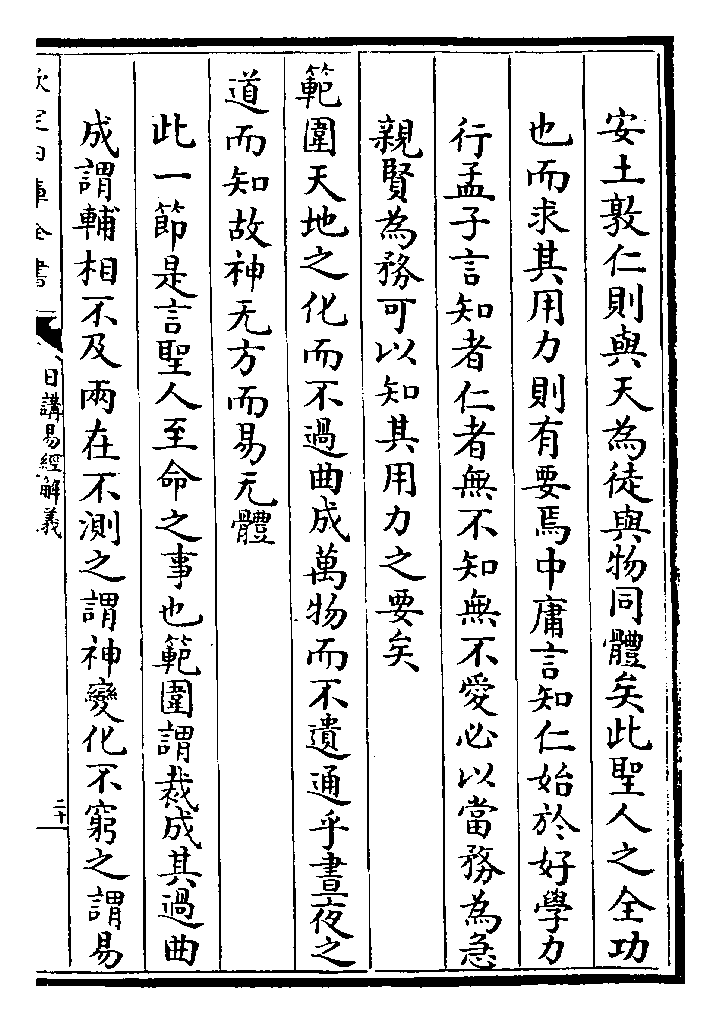 安土敦仁則與天為徒與物同體矣此聖人之全功
也而求其用力則有要焉中庸言知仁始於好學力
行孟子言知者仁者無不知無不愛必以當務為急
親賢為務可以知其用力之要矣
範圍天地之化而不過曲成萬物而不遺通乎晝夜之
道而知故神无方而易无體
此一節是言聖人至命之事也範圍謂裁成其過曲
成謂輔相不及兩在不測之謂神變化不窮之謂易
欽定四庫全書
日講易經解義
二十